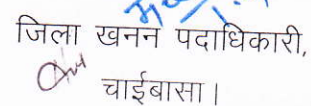 जिला खनन पदाधिकारी,
चाईबासा।